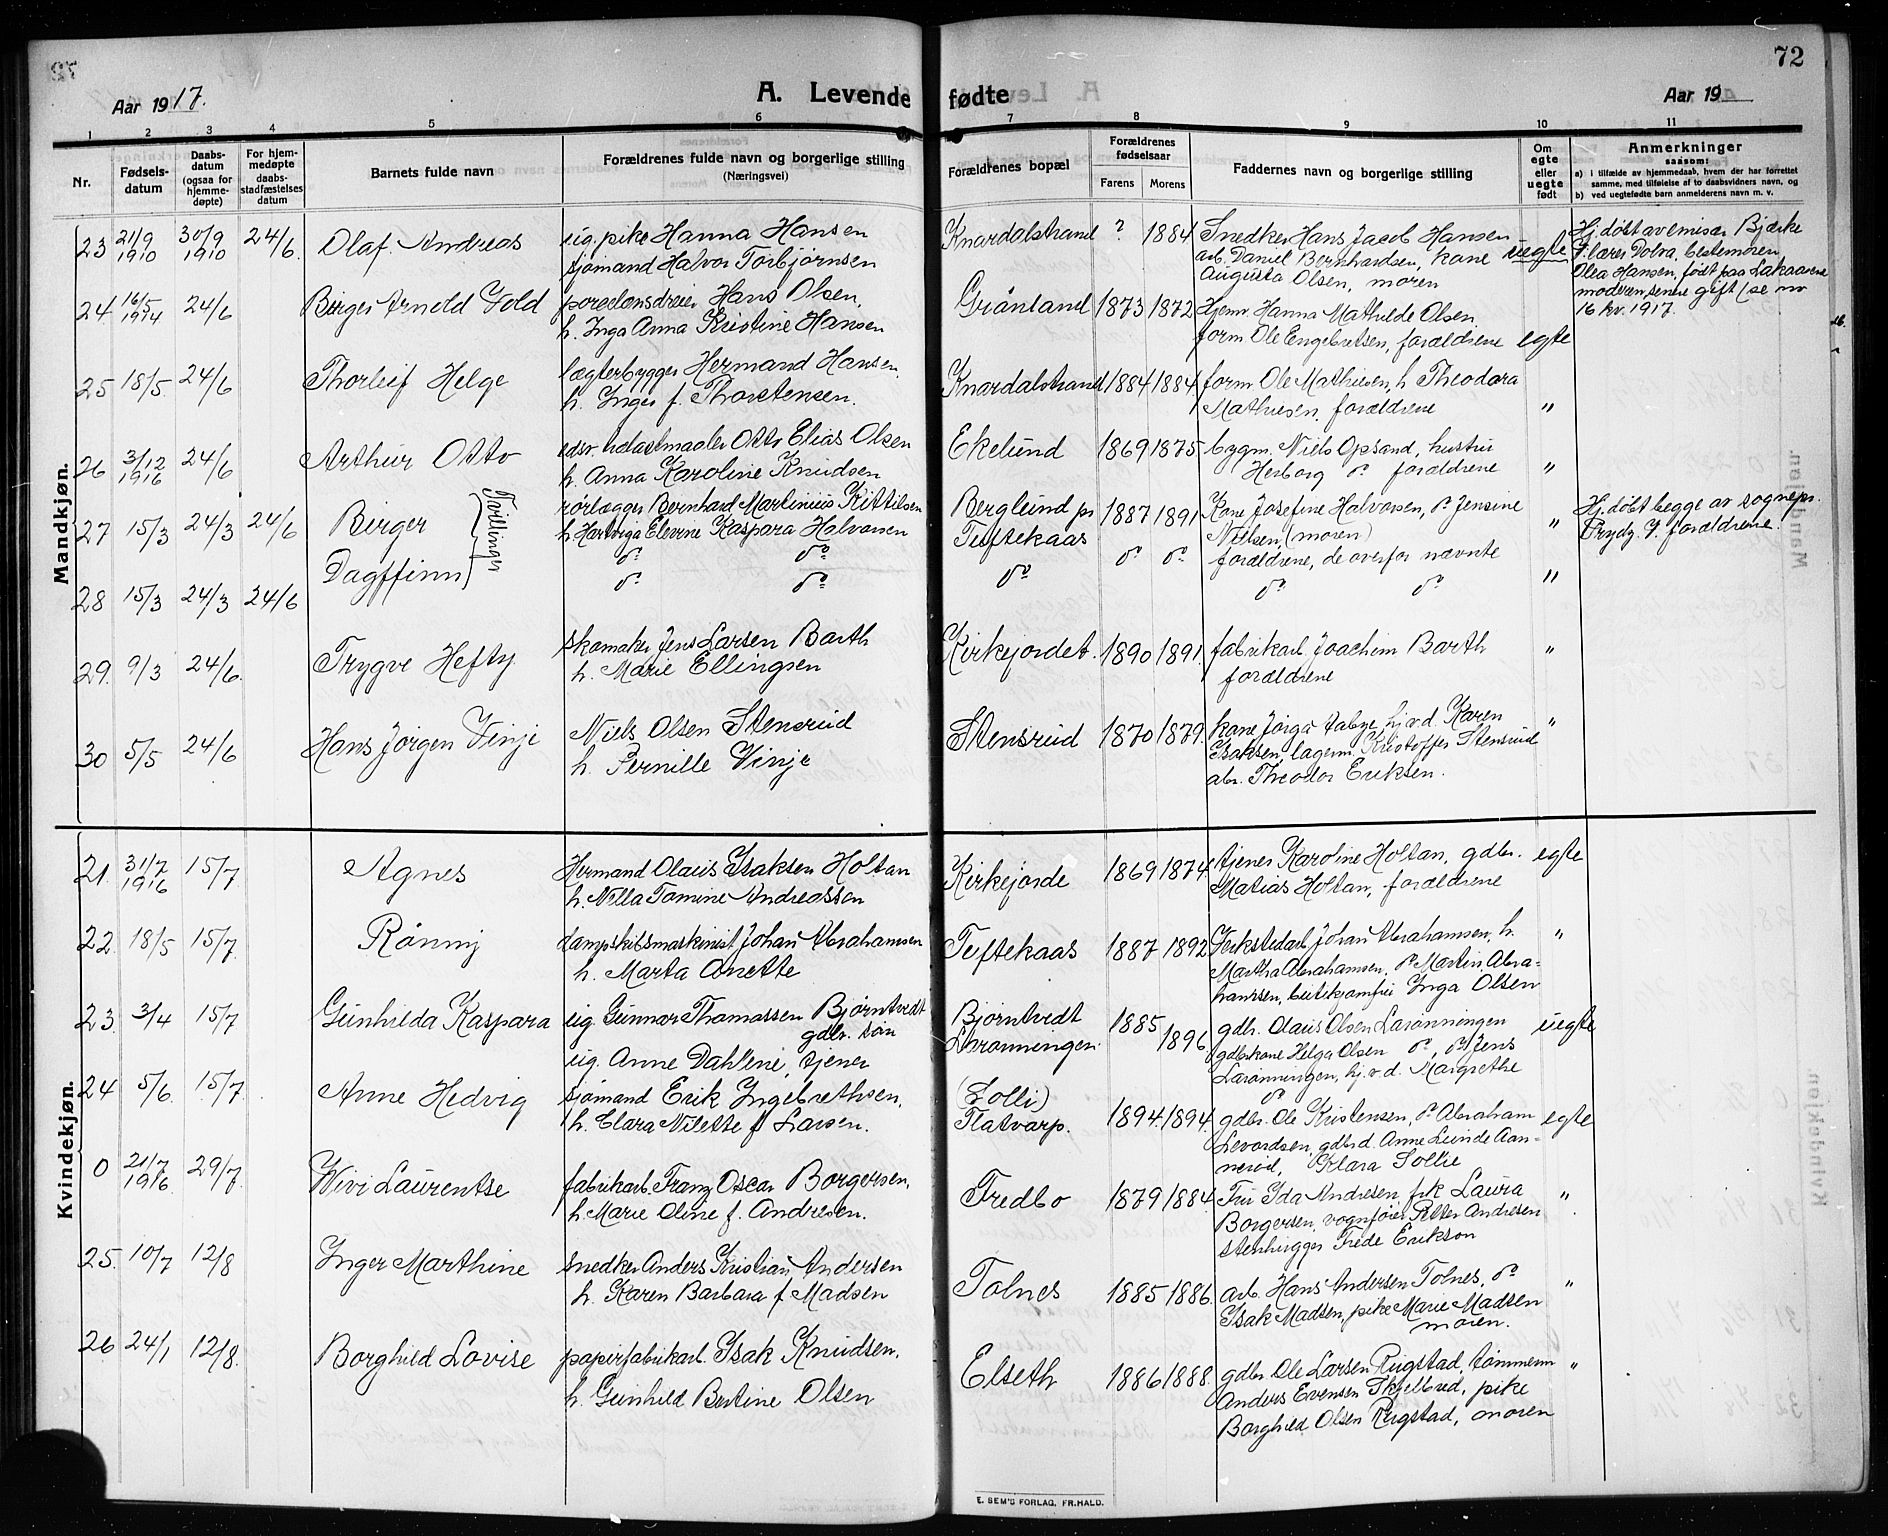 72
Aar 1917.
A. Levende fødte
Aar 19
1 2 3 4 5 6 7 8 9 10 11
Nr.
Fødsels-
datum
Daabs-
datum
(ogsaa for
hjemme-
døpte)
For hjem-
medøpte
daabs-
stadfæstelses
datum
Barnets fulde navn
Forældrenes fulde navn og borgerlige stilling
(Næringsvei)
Forældrenes bopæl
Forældrenes
fødselsaar
Farens Morens
Faddernes navn og borgerlige stilling
Om
egte
eller
uegte
født
Anmerkninger
saasom:
a) i tilfælde av hjemmedaab, hvem der har forrettet
samme, med tilføielse af to daabsvidners navn, og
b) ved uegtefødte barn anmelderens navn m. v.
Mandkjøn.
23 21/9 1910 30/9 1910 24/6 Olaf Andreas
ug. pike Hanna Hansen
sjømand Halvor Torbjørnsen
Knardalstrand ? 1884
Snedker Hans Jacob Hansen
arb. Daniel Bernhardsen, kane
Augusta Olsen, moren
uegte
Hj. døbt av emisær Bjerke
F. lærer Dolva, bestemoren
Olea Hansen, født paa Lakaaene
moderen senere gift (se no
16 kv. 1917.
24. 16/5 1914 24/6 Birger Arnold Fold
porselensdreier Hans Olsen,
h. Inga Anna Kristine Hansen
Grånland 1873 1872
Hjemv. Hanna Mathilde Olsen
form Ole Engebretsen, forældrene egte
25 18/5. 24/6 Thorleif Helge
lægterbygger Hermand Hansen,
h. Inger f. Thorstensen.
Knardalstrand 1884 1884
form. Ole Mathiesen, h Theodora
Mathiesen, forældrene "
26 3/12 1916 24/6 Arthur Otto
Otto Elias Olsen
h. Anna Karoline Knudsen
Ekelund 1869 1875
bygm. Niels Opsand, hustru
Herborg do forældrene "
27 15/3 24/3 24/6 Birger
Tvillinger
rørlægger Bernhard Martinius Kittilsen
h Hartviga Elevine Kaspara Halvorsen
Berglund pr
Tuftekaas 1887 1891
Kone Josefine Halvorsen, do Jensine
Nielsen, (moren)
forældrene, de overfor nævnte
"
Hj. døbt begge av sognepr.
Prydz. F. forældrene.
28 15/3 24/3 24/6 Dagffinn
do do
do do
do do do
do do "
29. 9/3 24/6. Trygve Hefty
skomaker Jens Larsen Barth
h. Marie Ellingsen
Kirkejordet. 1890 1891.
fabrikarb. Joachim Barth
forældrene "
30 5/5 24/6 Hans Jørgen Vinje
Niels Olsen Stensrud
h. Pernille Vinje
Stensrud 1870 1879.
kane Jørga Aabye, hj.v.d. Karen
Isaksen, lagerm. Kristoffer Stensrud
abr. Theodor Eriksen. "
Kvindekjøn.
21. 31/7 1916 15/7 Agnes
Hermand Olaus Isaksen Holtan
h. Nilla Tomine Andreassen
Kirkejorde 1869 1874
tjener Karoline Holtan, gdbr.
Matias Holtan, forældrene egte
22. 18/5 15/7. Rønnij
dampskibsmaskinist Johan Abrahamsen
h. Marta Anette
Tuftekaas 1887 1892
Verkstedarb Johan Abrahamsen, h.
Martha Abrahamsen, do Martin Abra-
hamsen, butikjomfru Inga Olsen "
23. 3/4 15/7 Gunhilda Kaspara
ug. Gunnar Thomassen Bjørntvedt
gdbr. søn
ug. Anne Dahlene, tjener
Bjørntvedt
Lårønningen. 1885 1896
gdbr. Olaus Olsen Larønningen
gdbrkone Helga Olsen do, do Jens
Larønningen, hj.v.d. Margrethe
do
uegte
24 5/6. 15/7. Anne Hedvig
sjømand Erik Ingebrethsen,
h. Clara Nilette f Larsen.
(Solli)
Flatvarp. 1894. 1894.
gdbr. Ole Kristensen, do Abraham
Levordsen, gdbrd. Anne Lunde Aan-
nerød, Klara Sollie egte
0 21/7 1916 29/7. Wivi Laurentse
fabrikarb. Franz Oscar Borgersen,
h. Marie Oline f. Andresen.
Fredbo 1879 1884
Fru Ida Andresen, frk Laura
Borgersen, vognfører Petter Andresen
stenhugger Frede Erikson "
25. 10/7 12/8 Inger Marthine
snedker Anders Kristian Andersen
h. Karen Barbara f Madsen
Tolnes 1885 1886.
arb. Hans Andersen Tolnes, do
Isak Madsen, pike Marie Madsen
moren. "
26 24/1 12/8. Borghild Lovise
papirfabrikarb. Isak Knudsen,
h. Gunhild Bertine Olsen
Elseth 1886 1888
gdbr. Ole Larsen Rugstad, tømmerm
Anders Evensen Skjelbred, pike
Borghild Olsen Rugstad, moren "
E. SEM'S FORLAG, FR.HALD.